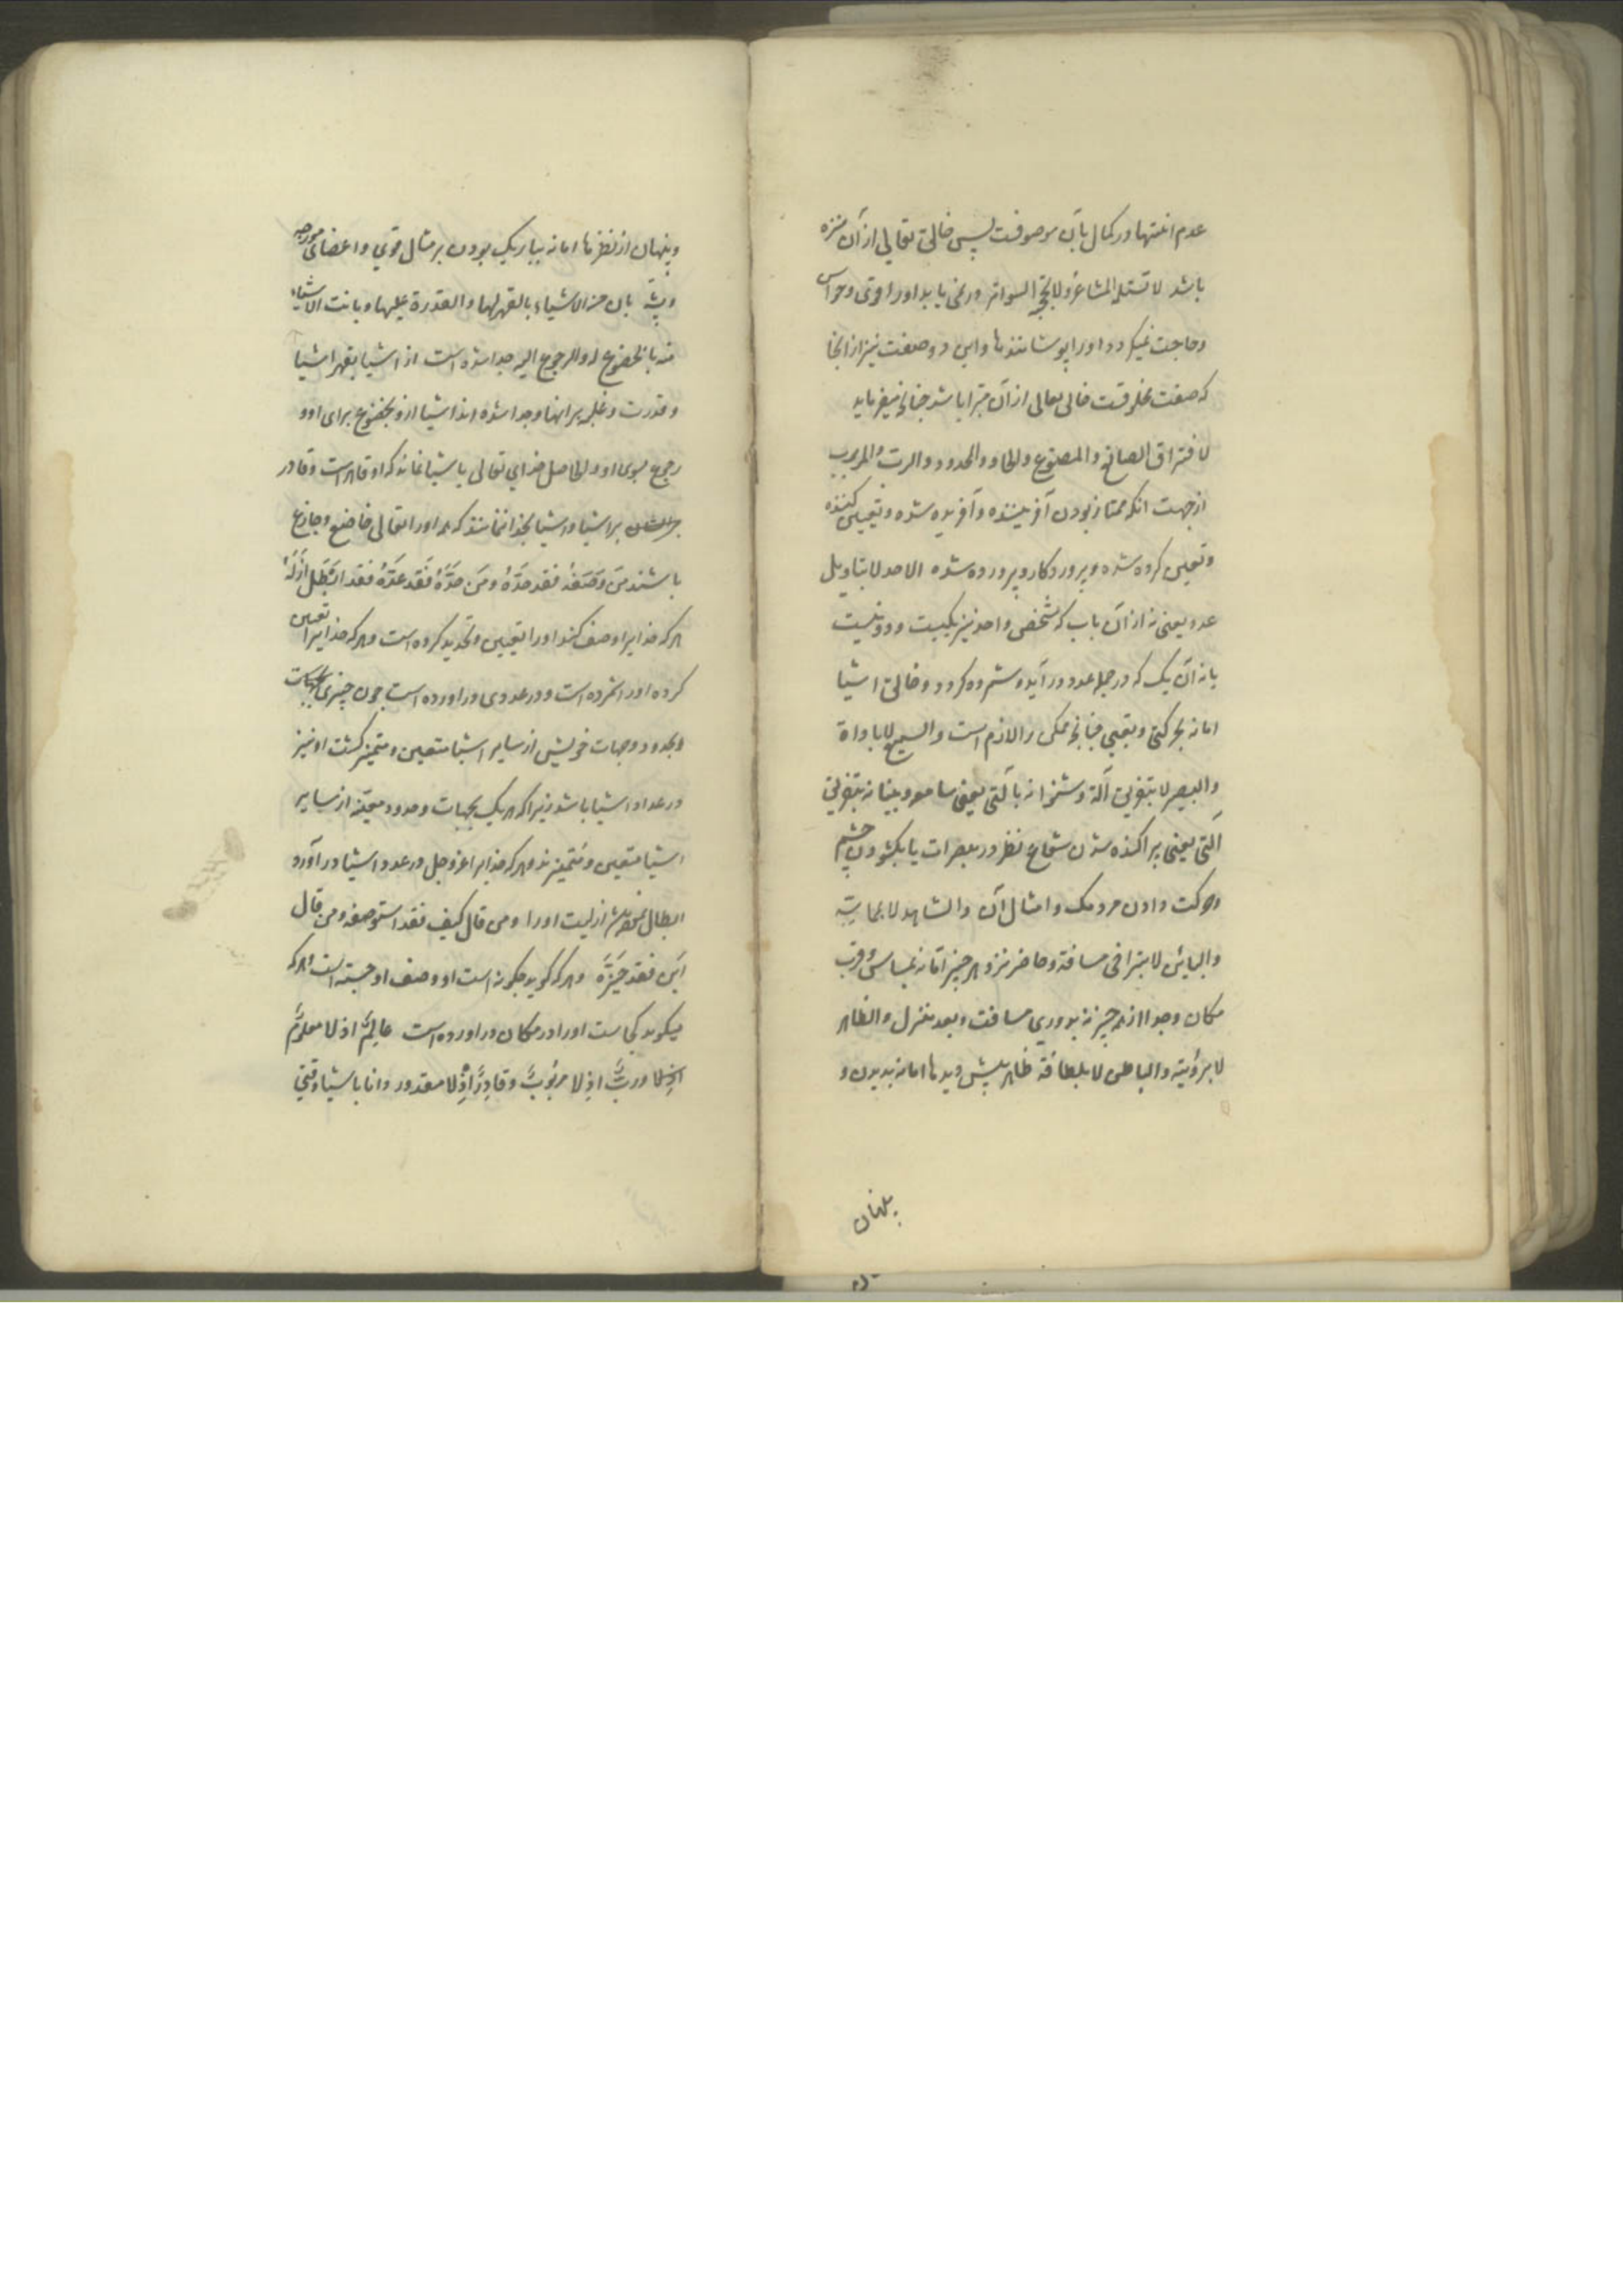 عدم انتها در کمال بآن موصوفست پس خالق تعالی از آن منزه
باشد لا تستلمه المشاعر و لا تحجبه السواتر در نمی یابد او را قوی و حواس
و حاجت نمیکردد او را پوشانندها و این دو صفت نیز از انجا
که صفت مخلوقست خالق تعالی از آن مبرا باشد چنانچه میفرماید
لافتراق الصانع و المصنوع و الحاد و المحدود و الرب و المربوب
از جهت انکه ممتاز بودن آفریننده و آفریده شده و تعیین کننده
و تعیین کرده شده و پروردکار و پرورده شده الاحد لا بتاویل
عدد یعنی نه از آن باب که شخص واحد نیز یکیست و دو نیست
یا نه آن یک که در جمله عدد در آید و شمرده کردد و خالق اشیا
اما نه بحرکتی و تعبی چنانچه ممکن را لازم است و السمیع لا باداة
و البصیر لا بتفریق آلة و شنوا نه بآلتی یعنی سامعه و بینا نه بتفریق
آلتی یعنی پراکنده شدن شعاع نظر در مبصرات یا بکشودن چشم
و حرکت دادن مردمک و امثال آن و الشاهد لا بمماسة
و البائن لا بتراخی مسافة و حاضر نزد هر چیز اما نه بمماسی و قرب
مکان و جدا از هر چیز نه بدوری مسافت و بعد منزل و الظاهر
لا برؤیته و الباطن لا بلطافة ظاهر پیش دیدها اما نه بدیدن و
پنهان
و پنهان از نظرها اما نه بباریک بودن بر مثال قوی و اعضای مورچه
و پشه بان من الاشیاء بالقهر لها و القدرة علیها و بانت الاشیاء
منه بالخضوع له و الرجوع الیه جدا شده است از اشیا بقهر اشیا
و قدرت و غلبه بر انها و جدا شده اند اشیا ازو بخضوع برای او و
رجوع بسوی او و الحاصل خدای تعالی باشیا نماند که او قاهر است و قادر
بر اشیا و اشیا بخدا نمانند که همه او را تعالی خاضع و جازع
باشند من وَصَفَهُ فقد حَدَّهُ و مَن حَدَّهُ فَقَد عَدَّهُ فقد ابْطَلَ ازَلَهُ
هر که خدایرا وصف کند او را تعیین و تحدید کرده است و هر که خدایرا تعیین
کرده او را شمرده است و در عددی در اورده است چون چیزی بجهات
و بحدود و جهات خویش از سایر اشیا متعین و متمیز کشت او نیز
در عداد اشیا باشد زیرا که هر یک بجهات و حدود معینه از سایر
اشیا متعین و متمیزند و هر که خدایرا عز و جل در عدد اشیا در آورد
ابطال نمود ازلیت او را و من قال کیف فقد استوصفه و من قال
اَیْنَ فقد حَیَّزَهُ و هر که کوید چکونه است او وصف او جسته است و هر که
میکوید کجاست او را در مکان در اورده است عالِمٌ اذ لا معلومٌ
و ربٌّ اذ لا مربُوبٌ و قادِرٌ اِذْ لا مقدور دانا باشیا وقتی